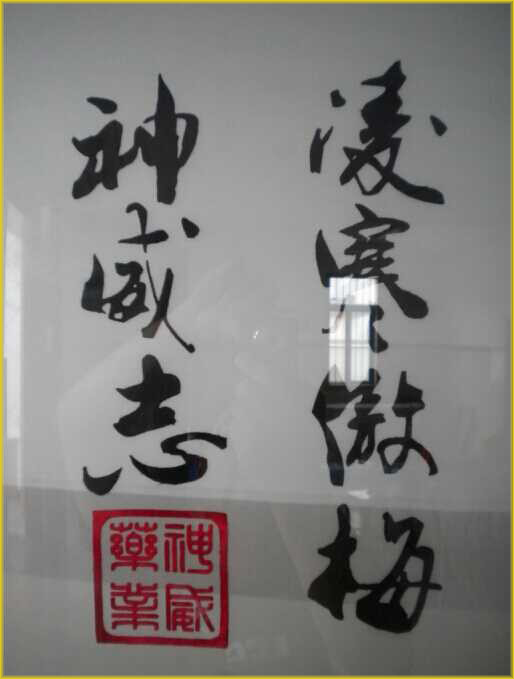 凌寒傲梅
神威志
神威
藥業